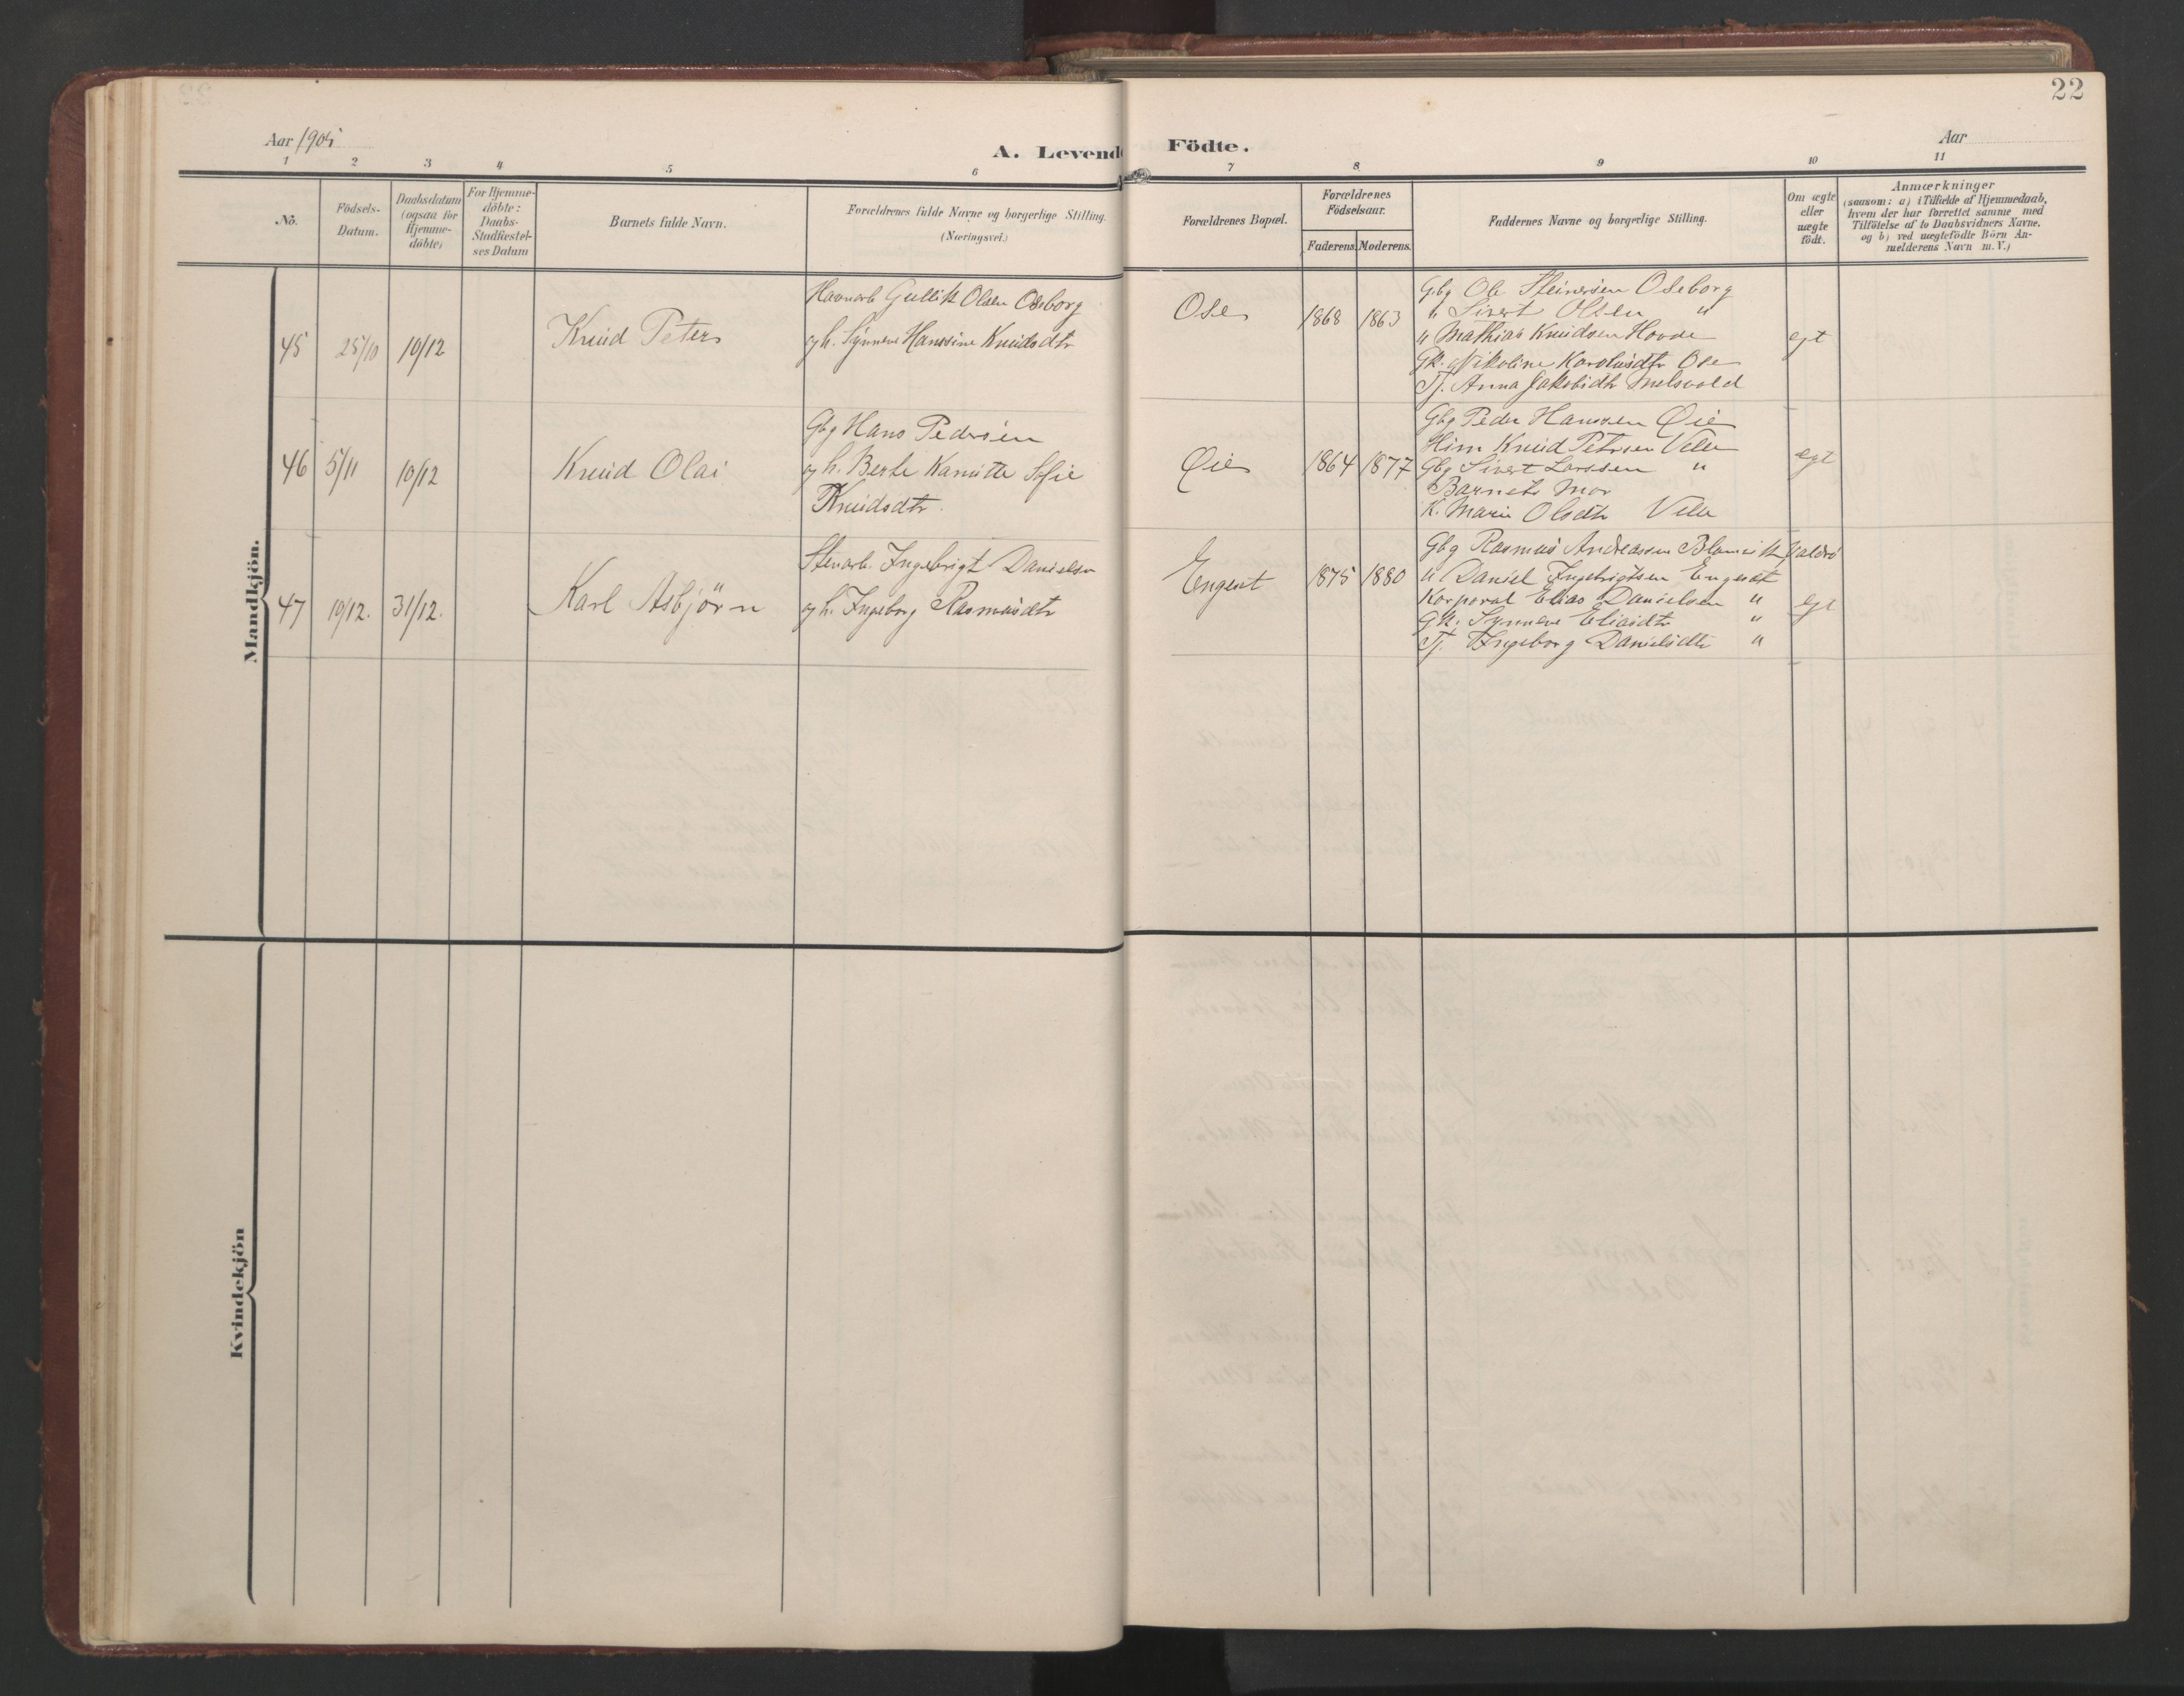 22
Aar 1905
A. Levende Födte.
Aar
1 2 3 4 5 6 7 8 9 10 11
No.
Födsels-
Datum.
Daabsdatum
(ogsaa for
Hjemme-
döbte)
For Hjemme-
döbte:
Daabs-
Stadfæstel-
ses Datum
Barnets fulde Navn.
Forældrenes fulde Navne og borgerlige Stilling.
(Næringsvei.)
Forældrenes Bopæl.
Forældrenes
Födselsaar.
Faderens. Moderens.
Faddernes Navne og borgerlige Stilling.
Om ægte
eller
uægte
födt.
Anmærkninger
(saasom: a) i Tilfælde af Hjemmedaab,
hvem der har forrettet samme med
Tilföielse af to Daabsvidners Navne.
og b) ved uægtefödte Börn An-
melderens Navn m. V.)
Mandkjön.
45 25/10 10/12
Knud Peter
Havnarb Gullik Olsen Oseborg
og h. Synneve Hanssine Knudsdtr
Ose
1868 1863
Gbg Ole Steinersen Oseborg
" Sivert Olsen "
" Mathias Knudsen Hovde
Gk. Nikoline Karolusdtr Ose
Tj. Anna Jakobsdtr Melsvold
egt
46 5/11 10/12
Knud Olai
Gbg Hans Pedersen
og h. Berte Kamitte Sofie
Knudsdtr.
Øie
1864 1877
Gbg Peder Hanssen Øie
Knud Petersen Velle
Gbg Sivert Larssen "
Barnets Mor
K. Marie Olsdtr Velle
ægt
47 10/12. 31/12.
Karl Asbjörn
Stenarb. Ingebrigt Danielsen
og h. Ingeborg Rasmusdtr
Engeset
1875 1880
Gbg Rasmus Andreassen Blomvik Valdrö
" Daniel Ingebrigtsen Engeset
Korporal Elias Danielsen "
Gk. Synneve Eliasdtr "
Tj. Ingeborg Danielsdtr "
egt
Kvindekjön